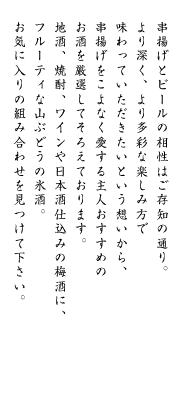 串揚げとビールの相性はご存知の通り。
より深く、より多彩な楽しみ方で
味わっていただきたいという想いから、
串揚げをこよなく愛する主人おすすめの
お酒を厳選してそろえております。
地酒、焼酎、ワインや日本酒仕込みの梅酒に、
フルーティな山ぶどうの氷酒。
お気に入りの組み合わせを見つけて下さい。